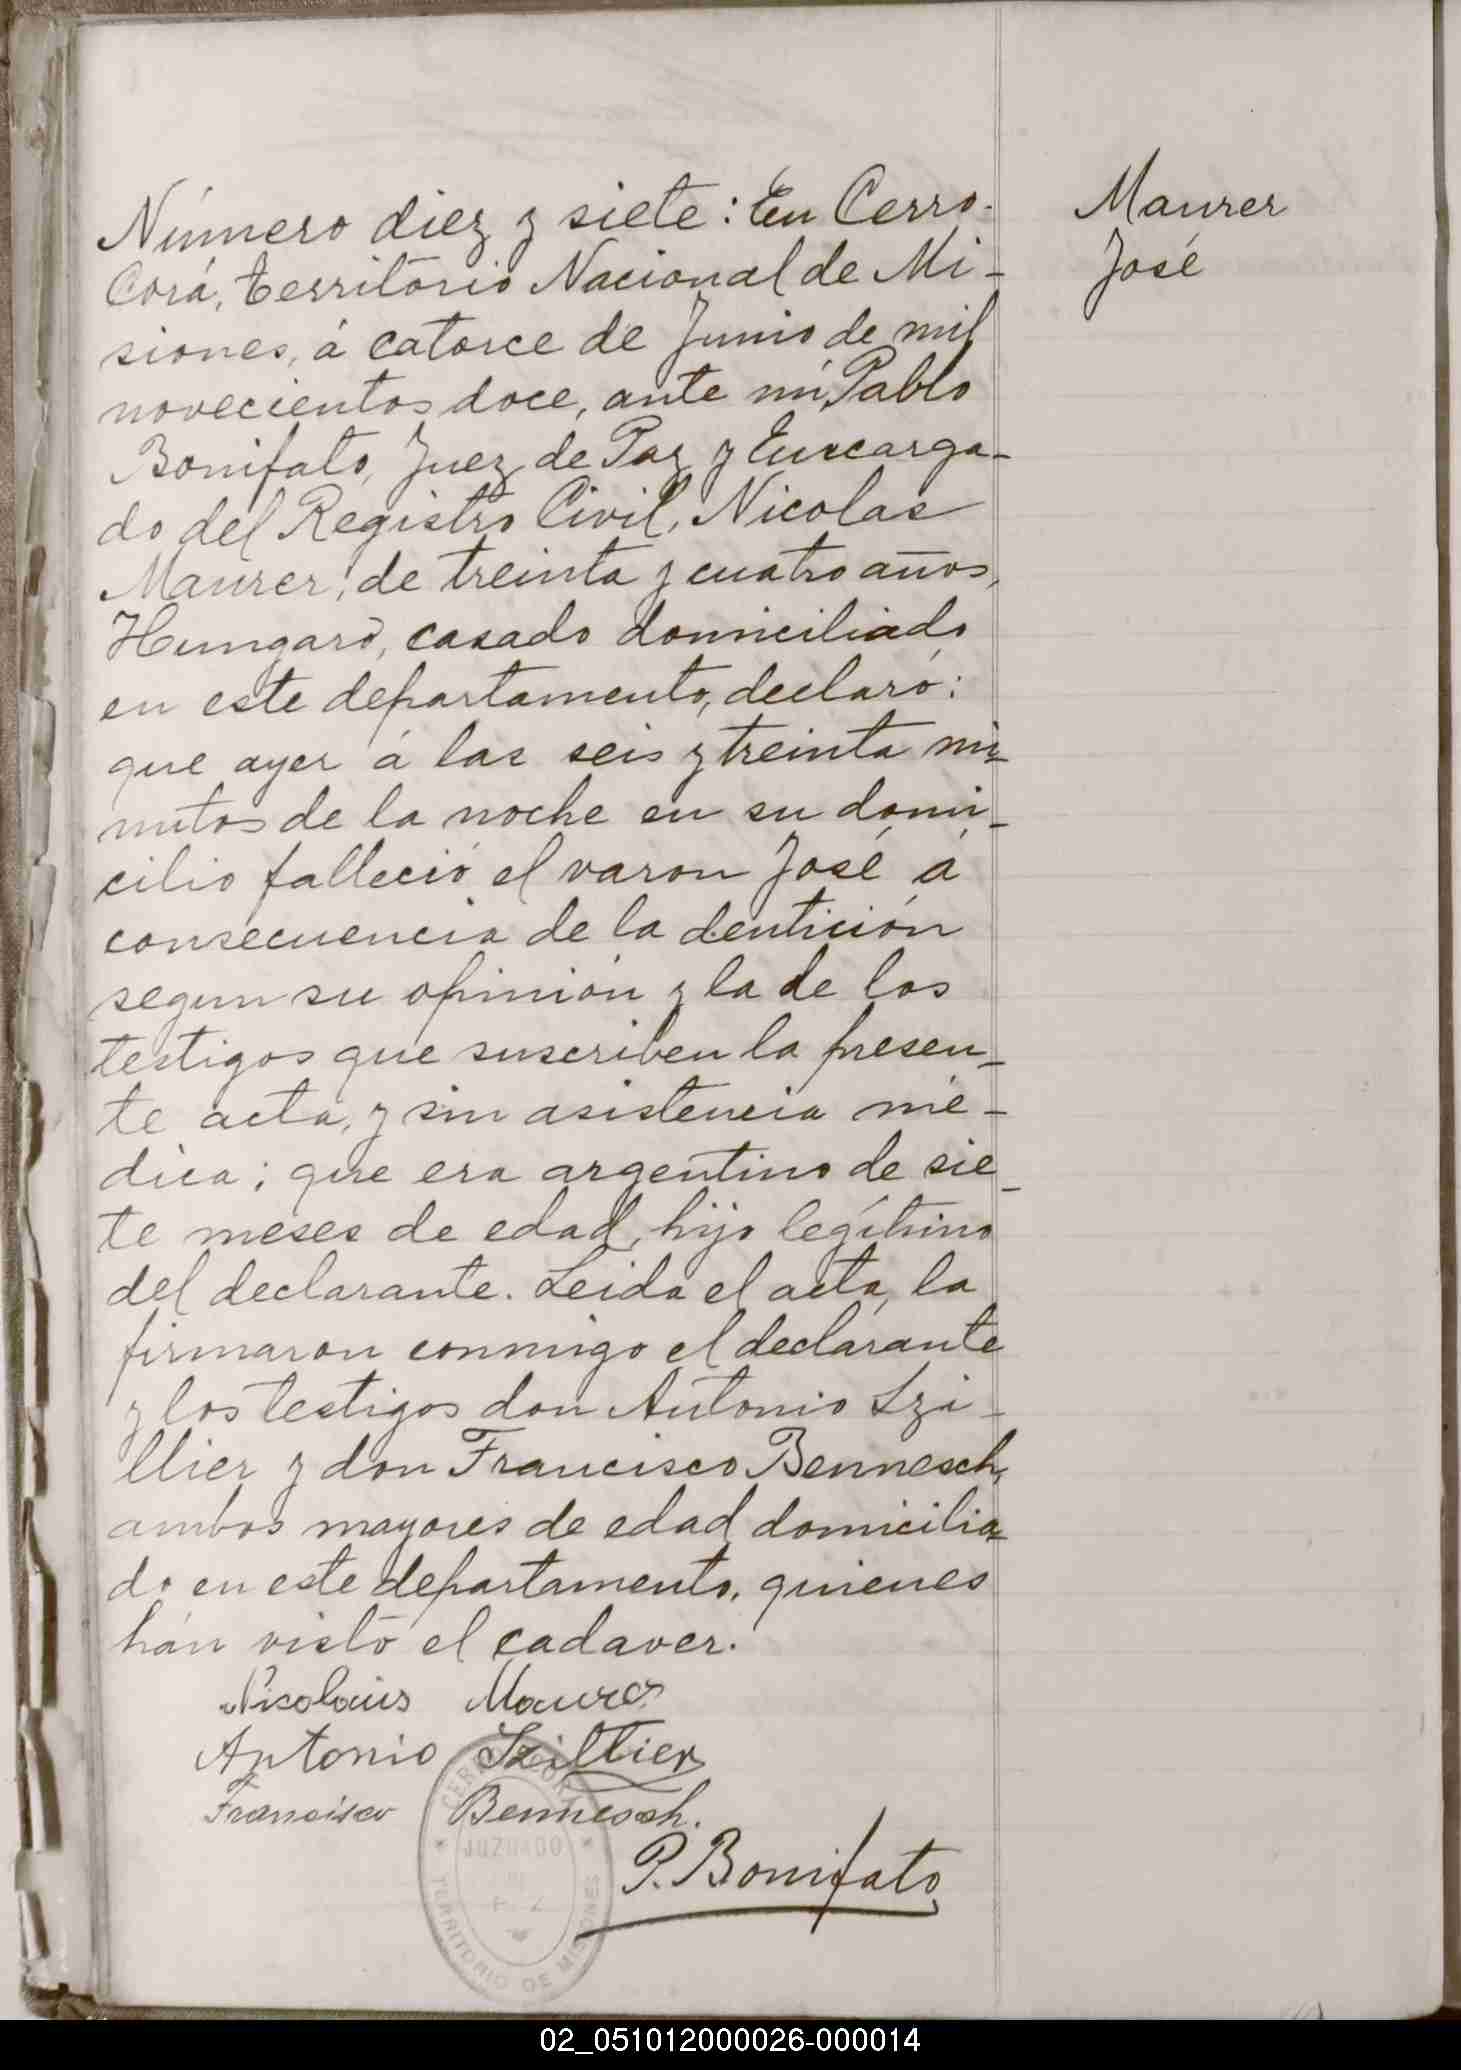 Número diez y siete: En Cerro-
Corá, territorio Nacional de Mi-
siones, á catorce de Junio de mil
novecientos doce, ante mi, Pablo
Bonifato, Juez de Paz y Encarga-
do del Registro Civil, Nicolas
Maurer, de treinta y cuatro años,
Hungaro, casado domiciliado
en este departamento, declaró:
que ayer á las seis y treinta mi-
nutos de la noche en su domi-
cilio falleció el varon José á
consecuencia de la dentición
segun su opinión y la de los
testigos que suscriben la presen-
te acta, y sin asistencia mé-
dica; que era argentino de sie-
te meses de edad, hijo legítimo
del declarante. Leida el acta, la
firmaron conmigo el declarante
y los testigos don Antonio Szi-
llier y don Francisco Bennesch,
ambos mayores de edad domicilia-
do en este departamento, quienes
hán visto el cadaver.
Nicolaus Maurer
Antonio Szillier
Francisco Bennesch.
P. Bonifato
Maurer
José
CERRO CORÁ
JUZGADO
DE
PAZ
TERRITORIO DE MISIONES
02_051012000026-000014